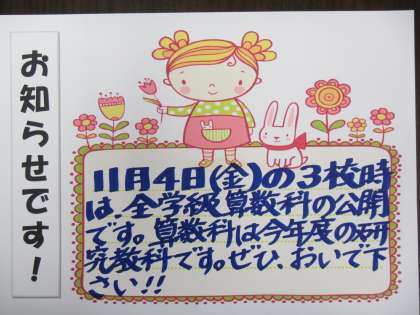 お知らせです！
11月4日(金)の3校時
は、全学級算数科の公開
です。算数科は今年度の研
究教科です。ぜひ、おいで下
さい!!